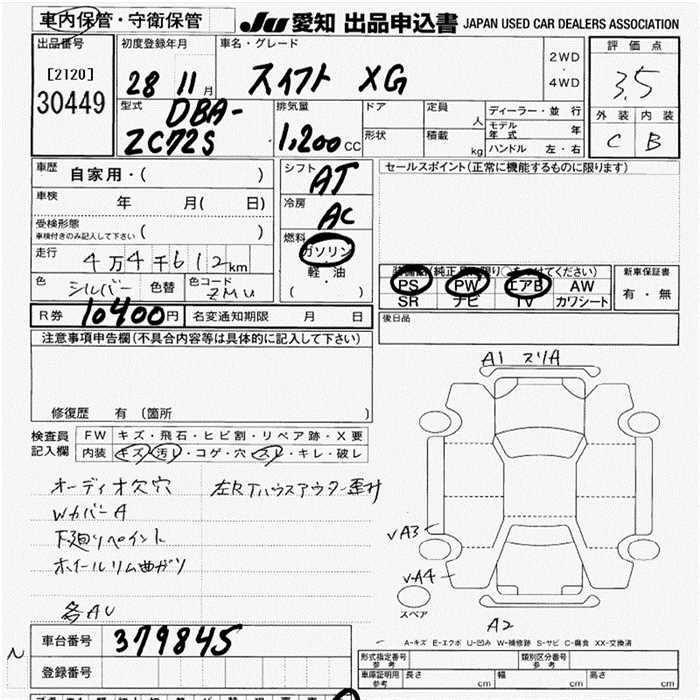 車内保管・守衛保管
JU 愛知 出品申込書 JAPAN USED CAR DEALERS ASSOCIATION
出品番号
[2120]
30449
初度登録年月
28 11月
車名・グレード
スイフト XG
2WD
・
4WD
評価点
3.5
外装 内装
C B
型式
DBA-
ZC72S
排気量
1,200cc
ドア
形状
定員
人
積載
kg
ディーラー・並行
モデル年式 年
ハンドル 左・右
車歴
自家用・( )
車検
年 月( 日)
受検形態
車検付きのみ記入して下さい ( )
走行
4万4千612km
色
シルバー
色替
色コード
ZMU
シフト
AT
冷房
AC
燃料
ガソリン
・
軽・油
( )
セールスポイント(正常に機能するものに限ります)
PS PW エアB AW
SR ナビ TV カワシート
新車保証書
有・無
R券 10400円
名変通知期限 月 日
後日品
注意事項申告欄(不具合内容等は具体的に記入して下さい)
修復歴 有 (箇所 )
検査員
記入欄
FW キズ・飛石・ヒビ割・リペア跡・X要
内装 キズ・汚レ・コゲ・穴・スレ・キレ・破レ
オーディオ欠穴 左Rタハウスアウター歪ミ
WカバーA
下廻りペイント
ホイールリム曲ガリ
各AU
A1 スリA
vA3
v-A4
スペア
A2
A-キズ E-エクボ U-凹み W-補修跡 S-サビ C-腐食 XX-交換済
車台番号 379845
登録番号
N
形式指定番号
参考
類別区分番号
参考
車庫証明用
参考
長さ cm
幅 cm
高さ cm